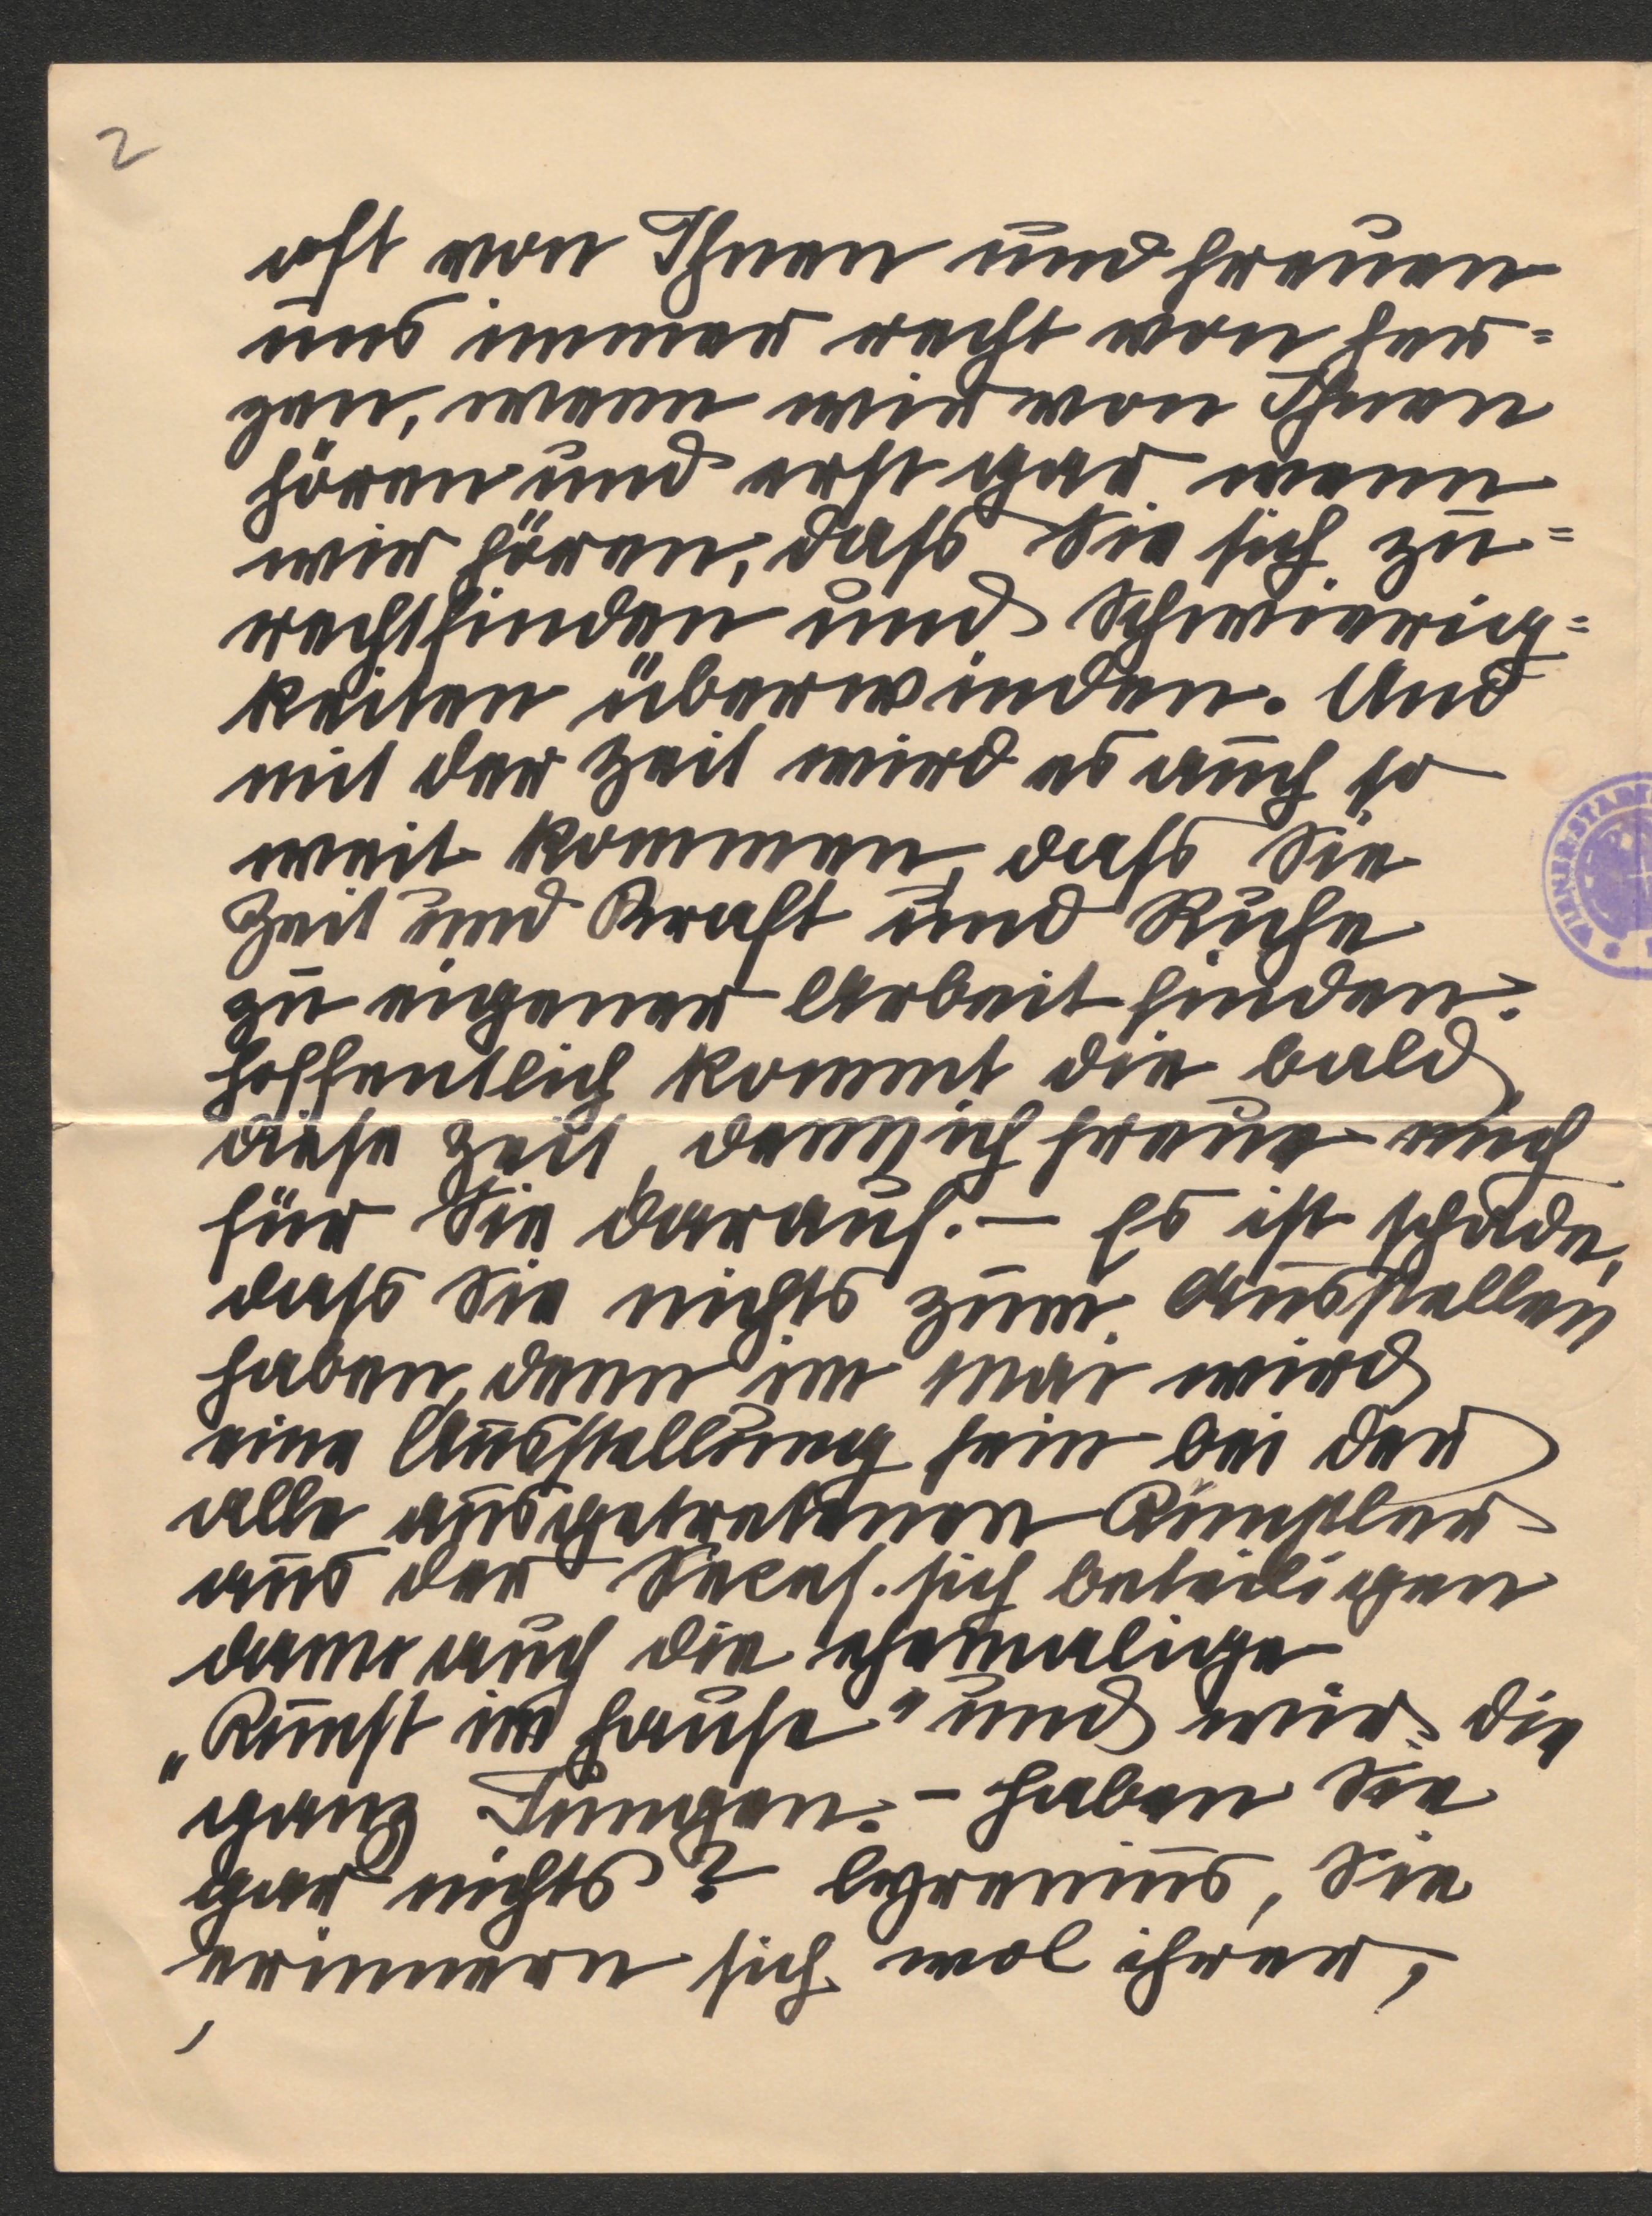 2
oft von Ihnen und freuen
uns immer recht von Her=
zen, wenn wir von Ihnen
hören und erst gar wenn
wir hören, dass Sie sich zu=
rechtfinden und Schwierig=
keiten überwinden. Und
mit der Zeit wird es auch so
weit kommen, dass Sie
Zeit und Kraft und Ruhe
zu eigener Arbeit finden.
Hoffentlich kommt die bald
diese Zeit, denn ich freue mich
für Sie darauf. – Es ist schade,
dass Sie nichts zum Ausstellen
haben, denn im Mai wird
eine Ausstellung sein bei der
alle ausgetretenen Künstler
aus der Secess. sich beteiligen
dann auch die ehemalige
„Kunst im Hause" und wir die
ganz Jungen. – Haben Sie
gar nichts? Cyrenius, Sie
erinnern sich wol ihrer,
WIENER STAD